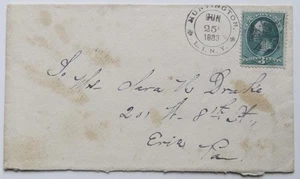 HUNTINGTON,
JUN
25
1883
L.I.N.Y.
To Mrs Sara R Drake
201 W. 8th St,
Erie
Pa